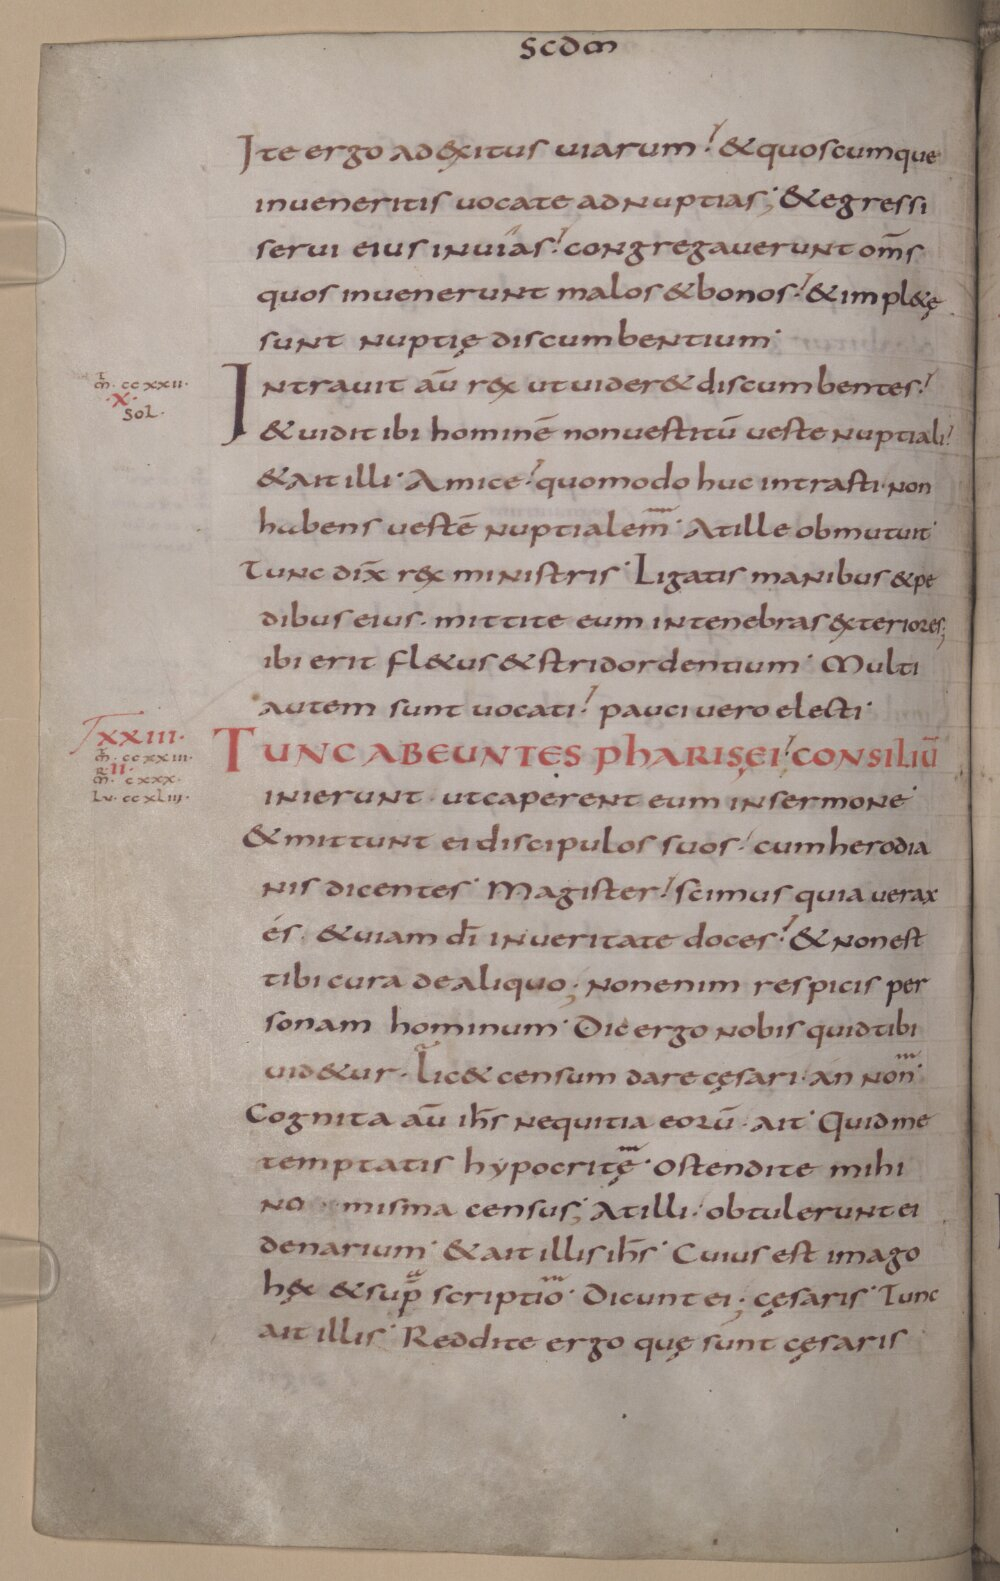 SCDM
Ite ergo ad exitus uiarum. & quoscumque
inueneritis uocate ad nuptias; & egressi
serui eius in uias. congregauerunt om̄s
quos inuenerunt malos & bonos. & impl&ę
sunt nuptię discumbentium.
m̄. ccxxii.
X.
Sol.
Intrauit aū rex ut uider& discumbentes.
& uidit ibi hominē non uestitū ueste nuptiali.
& ait illi. Amice. quomodo huc intrasti. non
habens uestē nuptialem. At ille obmutuit.
Tunc dix̄ rex ministris. Ligatis manibus & pe
dibus eius. mittite eum in tenebras exteriores;
ibi erit fl&us & stridor dentium. Multi
autem sunt uocati. pauci uero electi.
XXIII.
m̄. ccxxiii.
R. II.
m̄. cxxx.
Lu. ccxliii.
TUNC ABEUNTES PHARISĘI. CONSILIŪ
inierunt. ut caperent eum in sermone.
& mittunt ei discipulos suos. cum herodia
nis dicentes. Magister. scimus quia uerax
és. & uiam dī in ueritate doces. & non est
tibi cura de aliquo; non enim respicis per
sonam hominum. Dic ergo nobis quid tibi
uid&ur. Lic& censum dare cęsari. an non.
Cognita aū ih̄s nequitia eorū. ait. Quid me
temptatis hypocritę. Ostendite mihi
no misma census; At illi. obtulerunt ei
denarium. & ait illis ih̄s. Cuius est imago
hęc & sup̄ scriptio. Dicunt ei; cęsaris. Tunc
ait illis. Reddite ergo quę sunt cęsaris